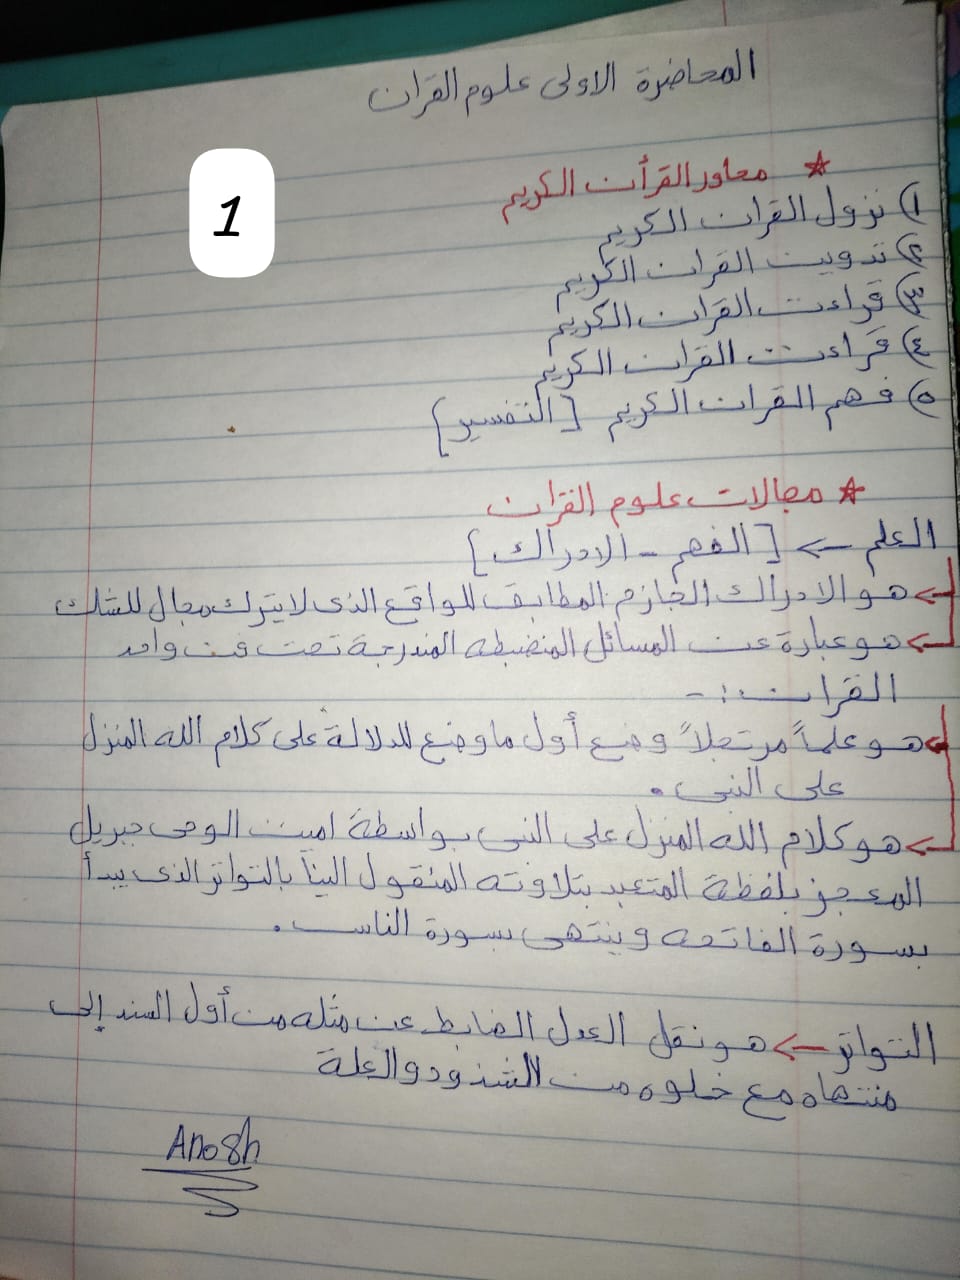 المحاضرة الاولى علوم القران
1
* محاور القرأن الكريم
١) نزول القران الكريم
٢) تدوين القران الكريم
٣) قراءت القران الكريم
٤) قراءت القران الكريم
٥) فهم القران الكريم [التفسير]
* مجالات علوم القران
العلم ← [الفهم - الادراك]
← هو الادراك الجازم المطابق للواقع الذى لا يترك مجال للشك
← هو عبارة عن المسائل المنضبطه المندرجة تحت فن واحد
القران :-
← هو علماً مرتجلاً وضع أول ما وضع للدلالة على كلام الله المنزل
على النبى .
← هو كلام الله المنزل على النبى بواسطة امين الوحى جبريل
المعجز بلفظة المتعبد بتلاوته المنقول الينا بالتواتر الذى يبدأ
بسورة الفاتحه وينتهى بسورة الناس .
التواتر ← هو نقل العدل الضابط عن مثله من أول السند إلى
منتهاه مع خلوه من الشذوذ والعلة
Anosh